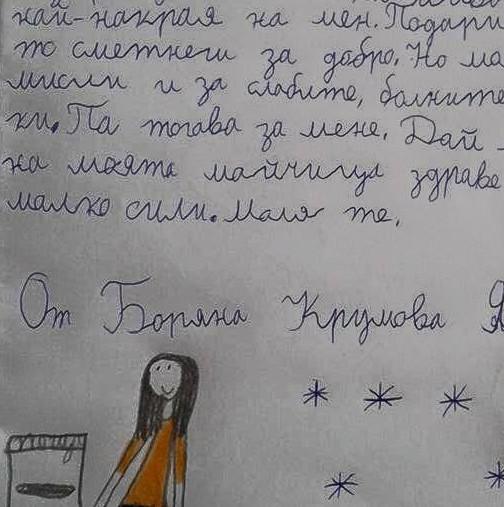 най-накрая на мен. Подари
то сметнеш за добро. Но ма
мисли и за слабите, болните
ки. Па тогава за мене. Дай
на моята майчица здраве
малко сили. Моля те.
От Боряна Крумова Я
поща